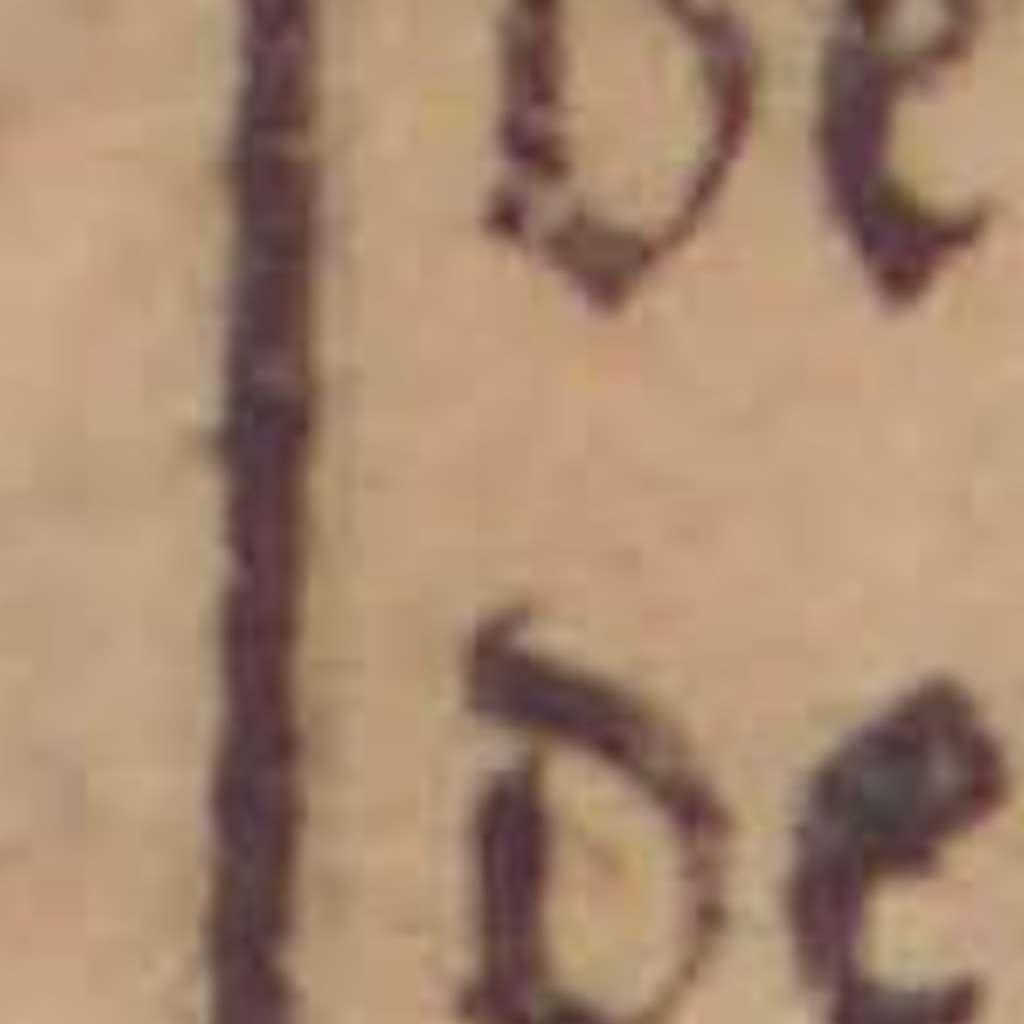 De
De